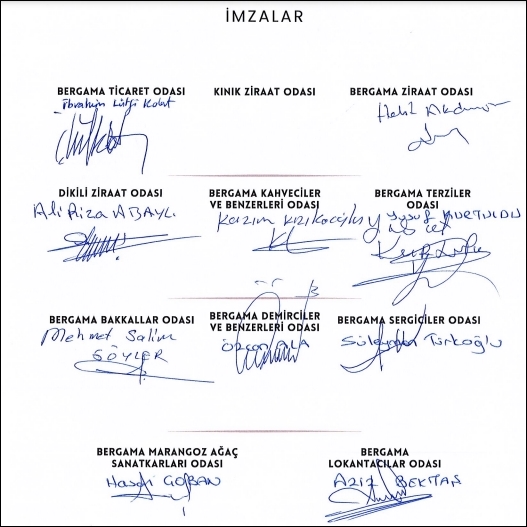 İMZALAR
BERGAMA TİCARET ODASI
İbrahim Lütfi Kolat
KINIK ZİRAAT ODASI
BERGAMA ZİRAAT ODASI
Halil
DİKİLİ ZİRAAT ODASI
Ali Rıza ABAYLI
BERGAMA KAHVECİLER
VE BENZERLERİ ODASI
Kazım
BERGAMA TERZİLER
ODASI
Yusuf KURTULDU
BERGAMA BAKKALLAR ODASI
Mehmet Salim
SÖYLER
BERGAMA DEMİRCİLER
VE BENZERLERİ ODASI
BERGAMA SERGİCİLER ODASI
Süleyman Türkoğlu
BERGAMA MARANGOZ AĞAÇ
SANATKARLARI ODASI
ÇOBAN
BERGAMA
LOKANTACILAR ODASI
AZİZ BEKTAŞ